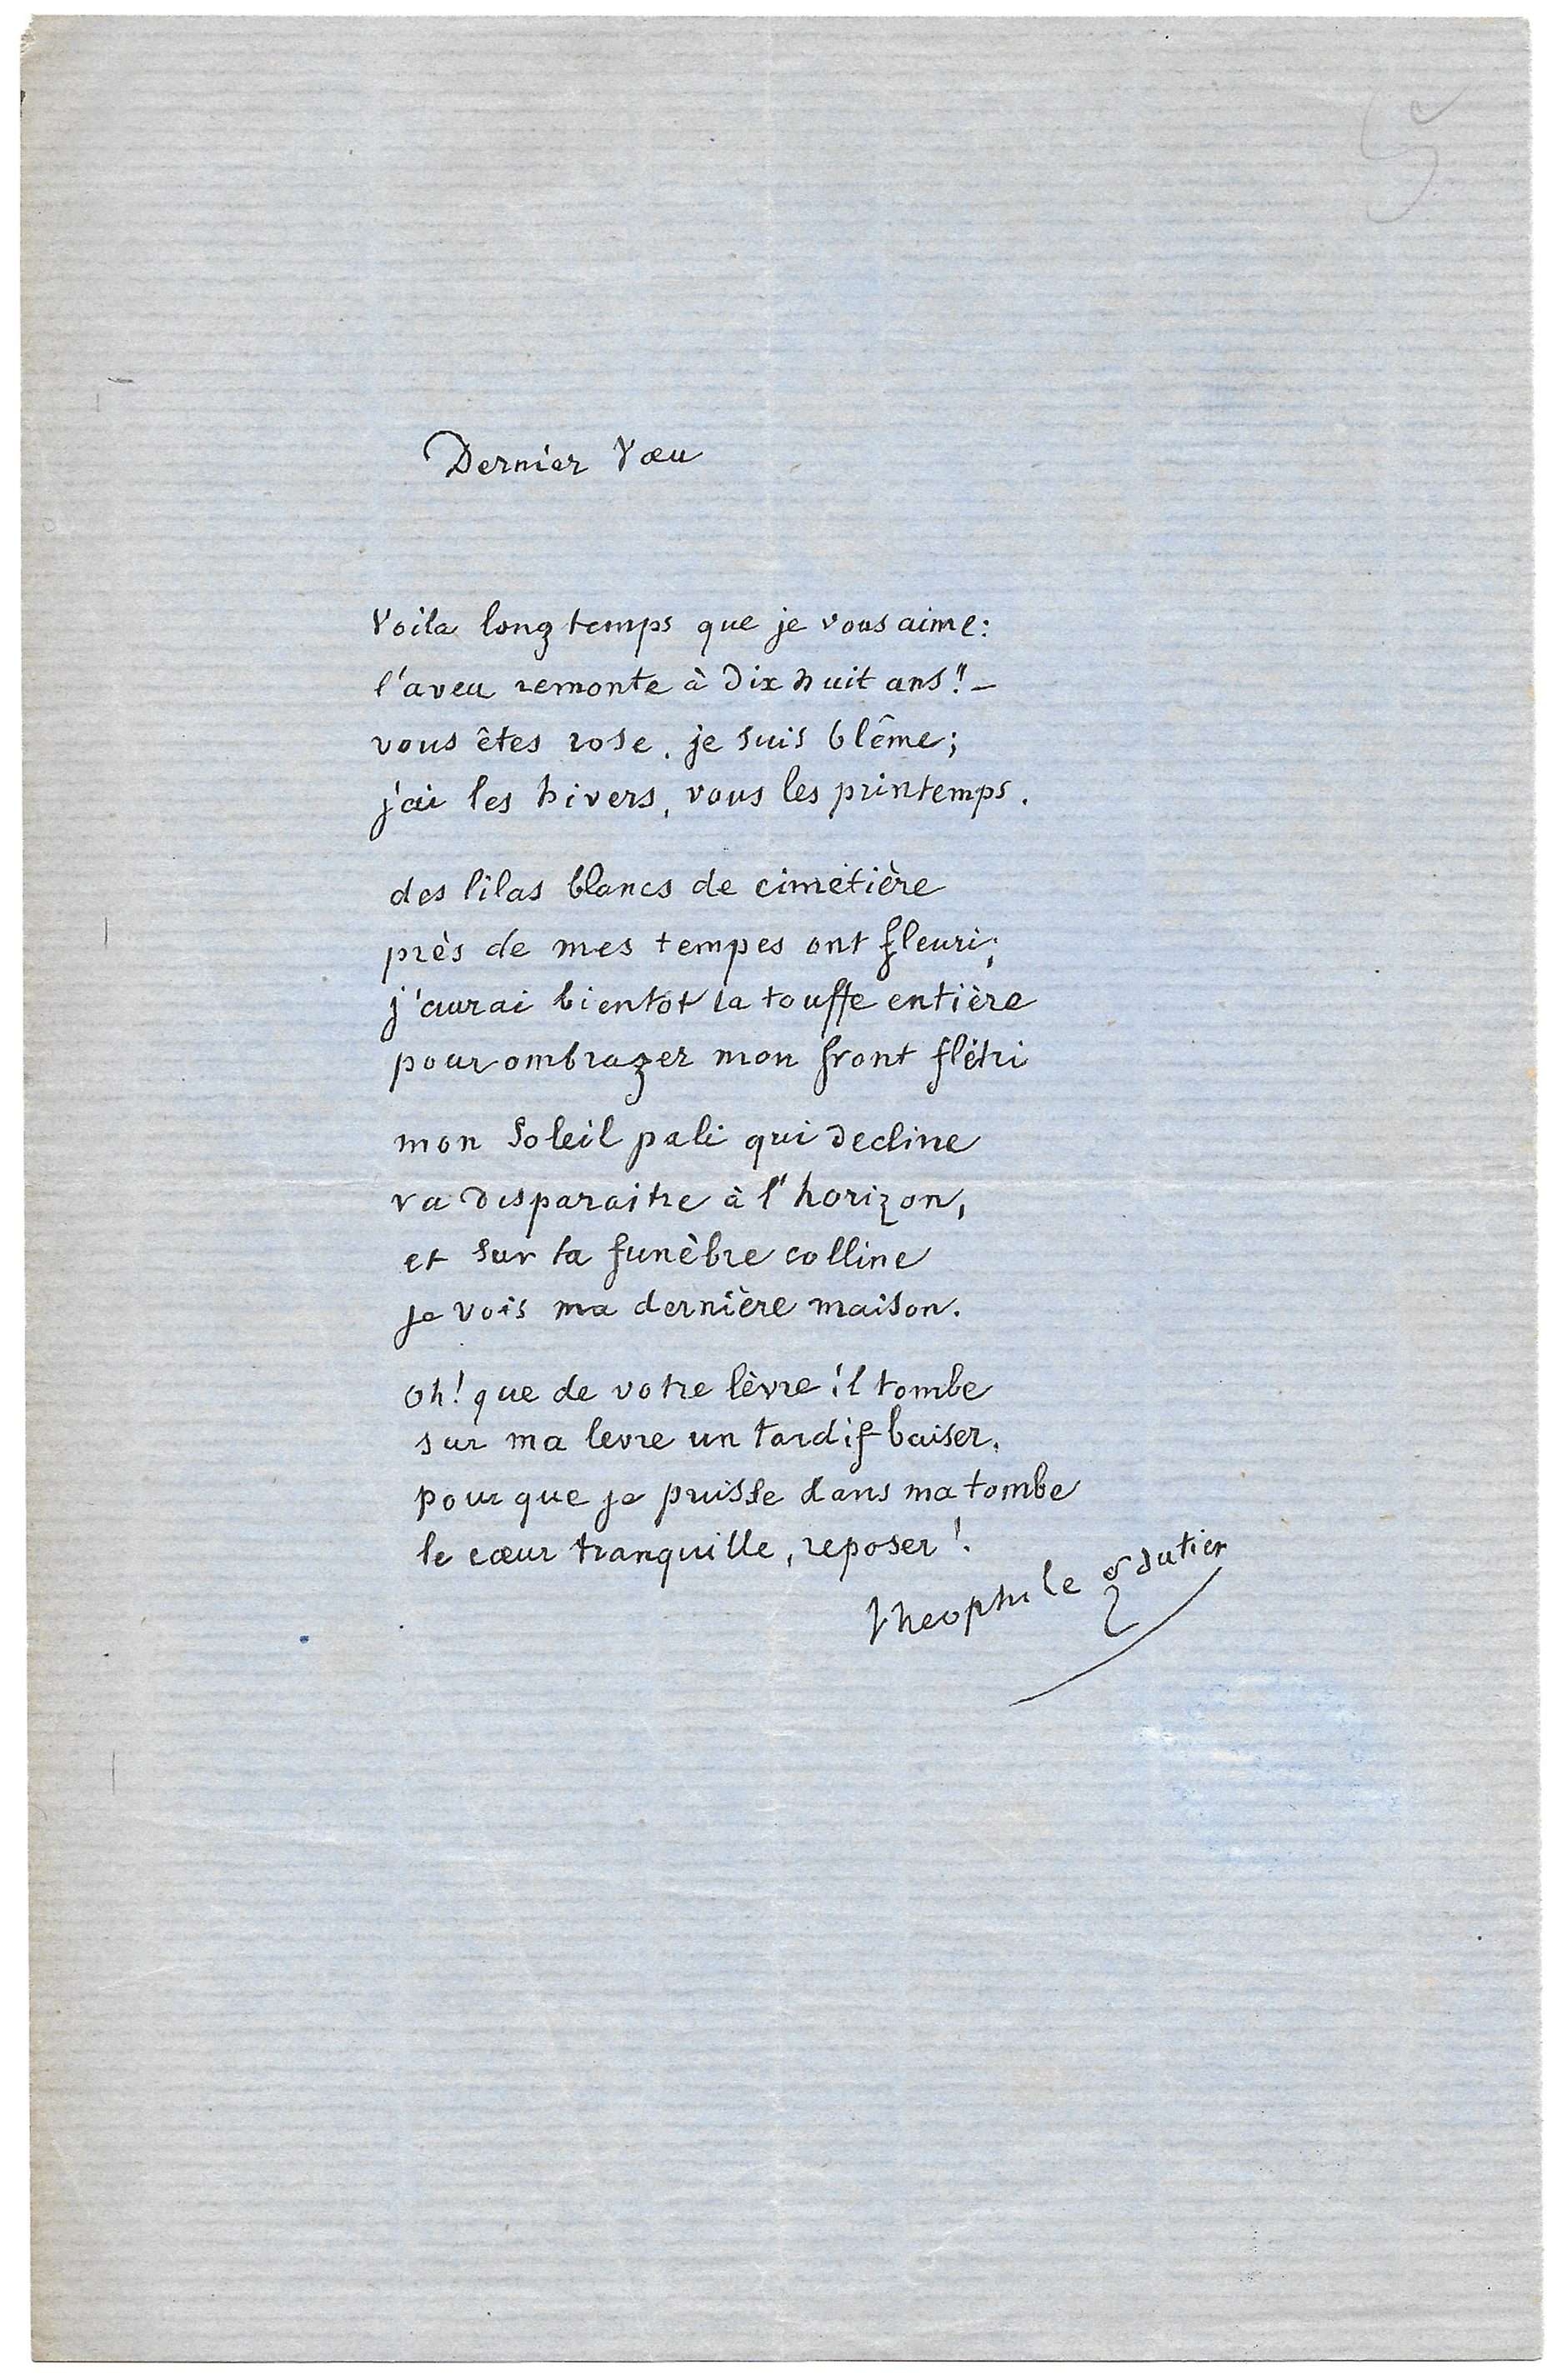 Dernier Vœu
Voila longtemps que je vous aime:
l'aveu remonte à dix huit ans! –
vous êtes rose, je suis blême;
j'ai les hivers, vous les printemps.
des lilas blancs de cimetière
près de mes tempes ont fleuri;
j'aurai bientot la touffe entière
pour ombrager mon front flétri
mon soleil pali qui decline
va disparaitre à l'horizon,
et sur la funèbre colline
je vois ma dernière maison.
oh! que de votre lèvre il tombe
sur ma levre un tardif baiser,
pour que je puisse dans ma tombe
le cœur tranquille, reposer!
theophile gautier